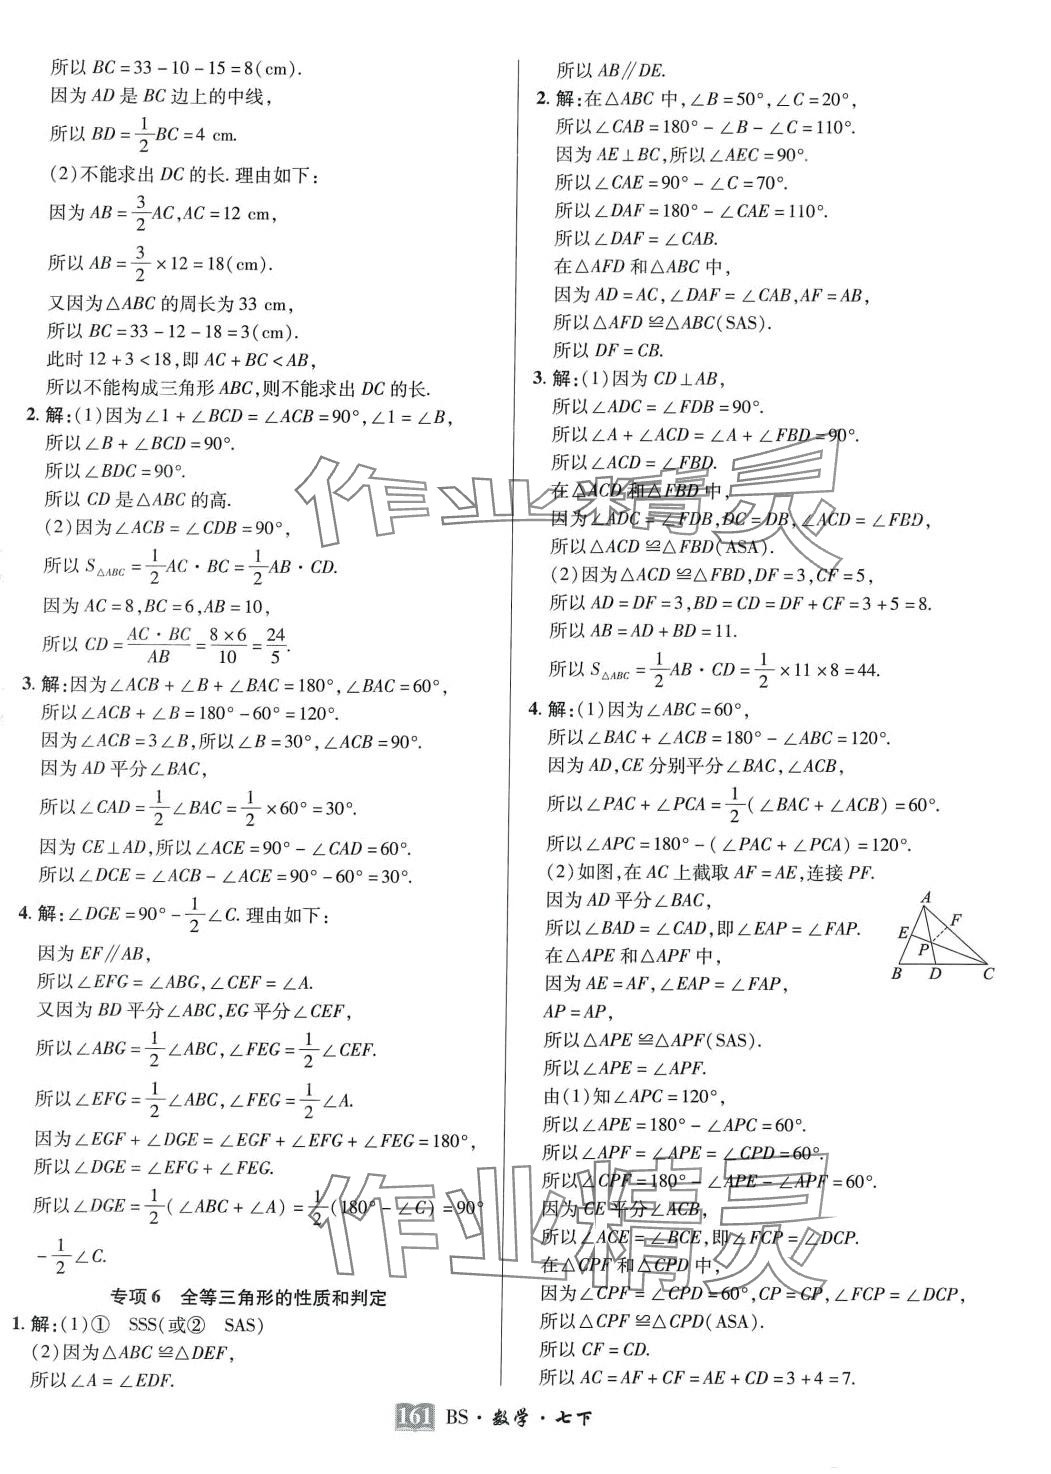 所以 BC=33-10-15=8(cm).
因为 AD 是 BC 边上的中线,
所以 BD=1/2BC=4 cm.
(2)不能求出 DC 的长. 理由如下:
因为 AB=3/2AC,AC=12 cm,
所以 AB=3/2×12=18(cm).
又因为△ABC 的周长为 33 cm,
所以 BC=33-12-18=3(cm).
此时 12+3<18,即 AC+BC<AB,
所以不能构成三角形 ABC,则不能求出 DC 的长.
2. 解:(1)因为∠1+∠BCD=∠ACB=90°,∠1=∠B,
所以∠B+∠BCD=90°.
所以∠BDC=90°.
所以 CD 是△ABC 的高.
(2)因为∠ACB=∠CDB=90°,
所以 S△ABC=1/2AC·BC=1/2AB·CD.
因为 AC=8,BC=6,AB=10,
所以 CD=AC·BC/AB=8×6/10=24/5.
3. 解:因为∠ACB+∠B+∠BAC=180°,∠BAC=60°,
所以∠ACB+∠B=180°-60°=120°.
因为∠ACB=3∠B,所以∠B=30°,∠ACB=90°.
因为 AD 平分∠BAC,
所以∠CAD=1/2∠BAC=1/2×60°=30°.
因为 CE⊥AD,所以∠ACE=90°-∠CAD=60°.
所以∠DCE=∠ACB-∠ACE=90°-60°=30°.
4. 解:∠DGE=90°-1/2∠C. 理由如下:
因为 EF∥AB,
所以∠EFG=∠ABG,∠CEF=∠A.
又因为 BD 平分∠ABC,EG 平分∠CEF,
所以∠ABG=1/2∠ABC,∠FEG=1/2∠CEF.
所以∠EFG=1/2∠ABC,∠FEG=1/2∠A.
因为∠EGF+∠DGE=∠EGF+∠EFG+∠FEG=180°,
所以∠DGE=∠EFG+∠FEG.
所以∠DGE=1/2(∠ABC+∠A)=1/2(180°-∠C)=90°
-1/2∠C.
专项 6 全等三角形的性质和判定
1. 解:(1)① SSS(或② SAS)
(2)因为△ABC≌△DEF,
所以∠A=∠EDF.
所以 AB∥DE.
2. 解:在△ABC 中,∠B=50°,∠C=20°,
所以∠CAB=180°-∠B-∠C=110°.
因为 AE⊥BC,所以∠AEC=90°.
所以∠CAE=90°-∠C=70°.
所以∠DAF=180°-∠CAE=110°.
所以∠DAF=∠CAB.
在△AFD 和△ABC 中,
因为 AD=AC,∠DAF=∠CAB,AF=AB,
所以△AFD≌△ABC(SAS).
所以 DF=CB.
3. 解:(1)因为 CD⊥AB,
所以∠ADC=∠FDB=90°.
所以∠A+∠ACD=∠A+∠FBD=90°.
所以∠ACD=∠FBD.
在△ACD 和△FBD 中,
因为∠ADC=∠FDB,DC=DB,∠ACD=∠FBD,
所以△ACD≌△FBD(ASA).
(2)因为△ACD≌△FBD,DF=3,CF=5,
所以 AD=DF=3,BD=CD=DF+CF=3+5=8.
所以 AB=AD+BD=11.
所以 S△ABC=1/2AB·CD=1/2×11×8=44.
4. 解:(1)因为∠ABC=60°,
所以∠BAC+∠ACB=180°-∠ABC=120°.
因为 AD,CE 分别平分∠BAC,∠ACB,
所以∠PAC+∠PCA=1/2(∠BAC+∠ACB)=60°.
所以∠APC=180°-(∠PAC+∠PCA)=120°.
(2)如图,在 AC 上截取 AF=AE,连接 PF.
因为 AD 平分∠BAC,
所以∠BAD=∠CAD,即∠EAP=∠FAP.
在△APE 和△APF 中,
因为 AE=AF,∠EAP=∠FAP,
AP=AP,
所以△APE≌△APF(SAS).
所以∠APE=∠APF.
由(1)知∠APC=120°,
所以∠APE=180°-∠APC=60°.
所以∠APF=∠APE=∠CPD=60°.
所以∠CPF=180°-∠APE-∠APF=60°.
因为 CE 平分∠ACB,
所以∠ACE=∠BCE,即∠FCP=∠DCP.
在△CPF 和△CPD 中,
因为∠CPF=∠CPD=60°,CP=CP,∠FCP=∠DCP,
所以△CPF≌△CPD(ASA).
所以 CF=CD.
所以 AC=AF+CF=AE+CD=3+4=7.
A
F
E
P
B D C
作业精灵
作业精灵
161 BS·数学·七下